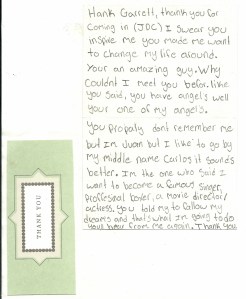 Hank Garrett, thank you for
coming in (JDC) I swear you
inspire me you made me want
to change my life around.
Your an amazing guy. Why
Couldnt I meet you befor. like
you said, you have angels well
your one of my angels.
You propaly dont remember me
but Im Juan but I like to go by
my middle name Carlos it sounds
better. Im the one who said I
want to become a famous singer,
proffesonal boxer, a movie director/
actress. you told my to follow my
dreams and thats what Im going to do
your hear from me again. Thank you
THANK YOU